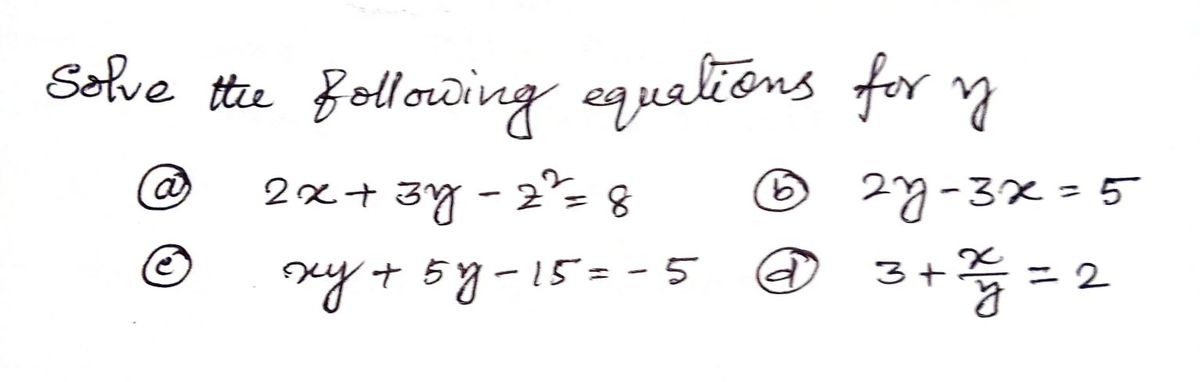 Solve the following equations for y
ⓐ 2x + 3y - z² = 8 ⓑ 2y - 3x = 5
ⓒ xy + 5y - 15 = - 5 ⓓ 3 + x/y = 2